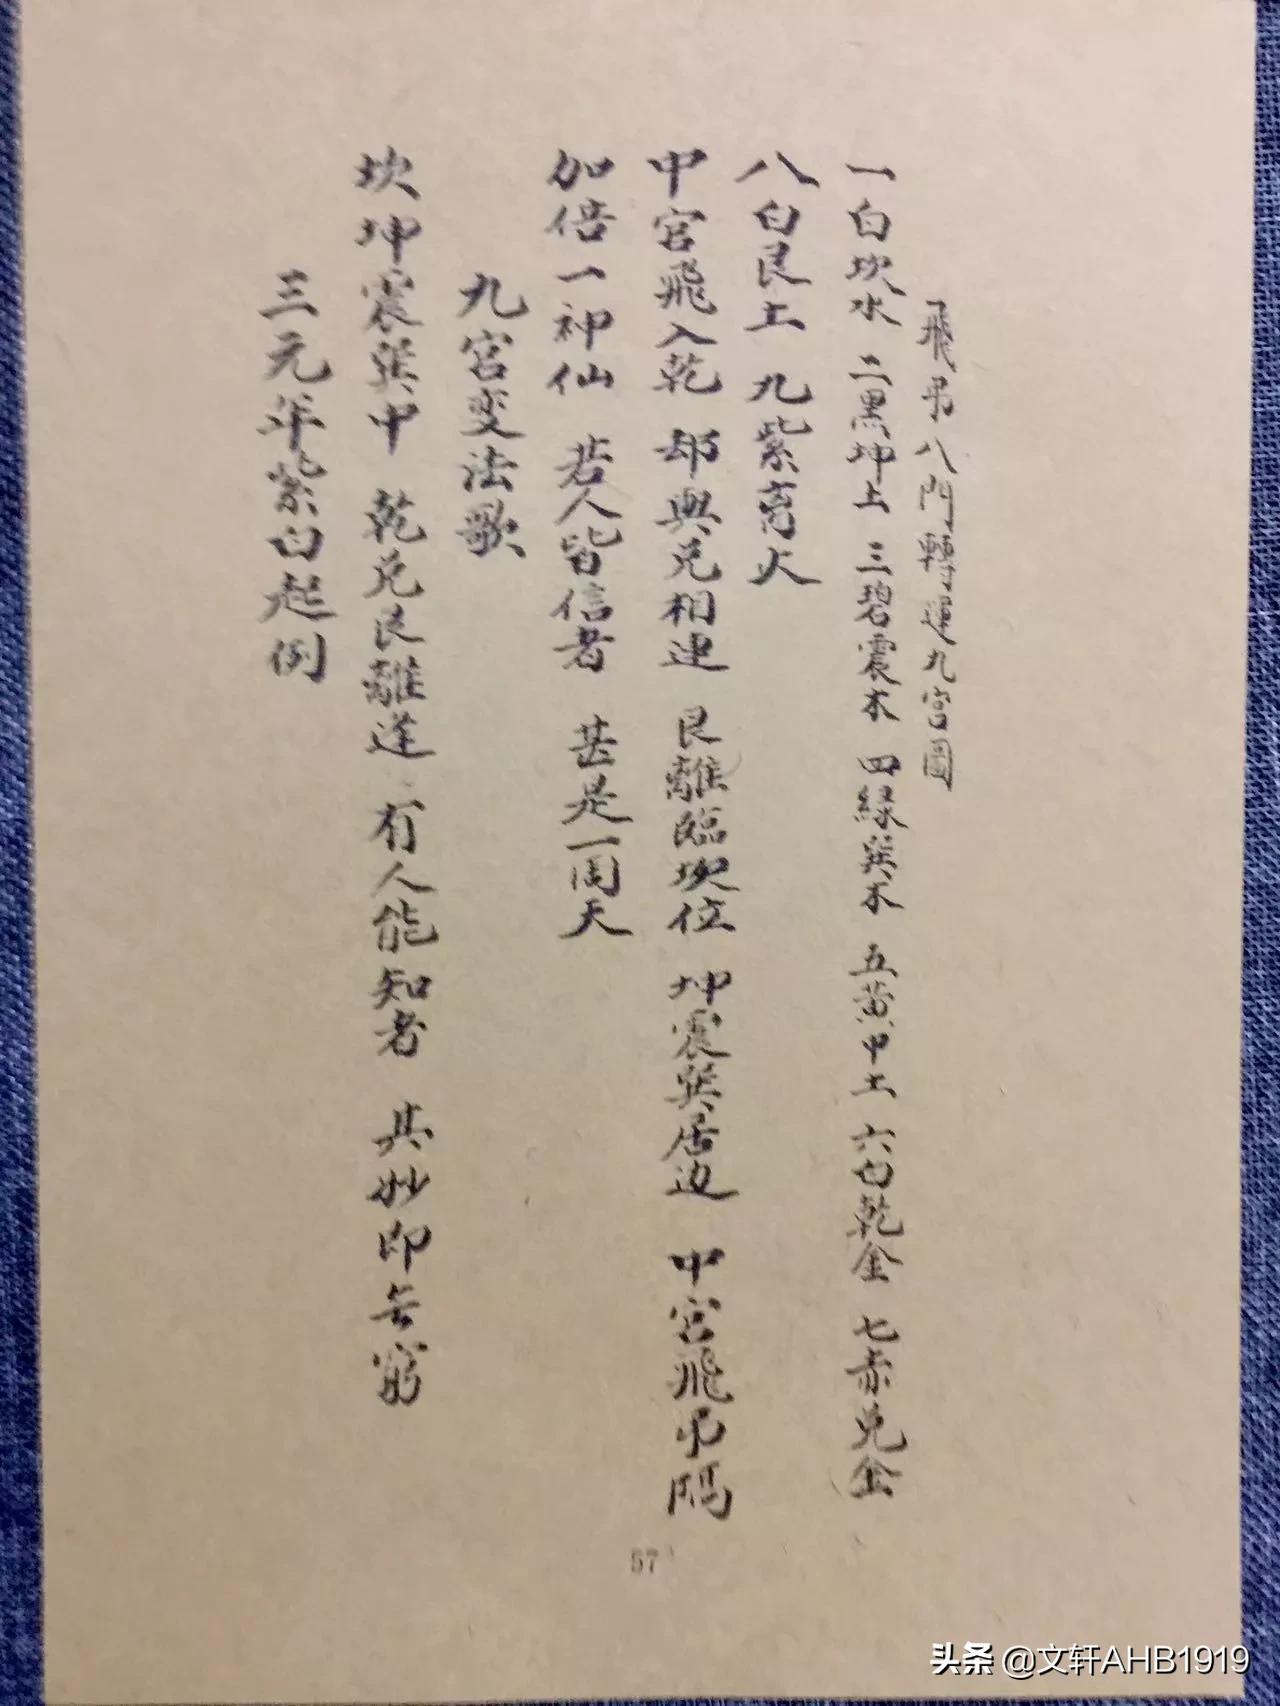 飛吊八門轉運九宮圖
一白坎水 二黑坤土 三碧震木 四綠巽木 五黃中土 六白乾金 七赤兌金
八白艮土 九紫离火
中宮飛入乾 却與兌相連 艮離臨坎位 坤震巽居边 中宮飛吊隅
加倍一神仙 若人皆信者 甚是一周天
九宮变法歌
坎坤震巽中 乾兌艮離逢 有人能知者 其妙即无窮
三元年紫白起例
57
头条 @文轩AHB1919